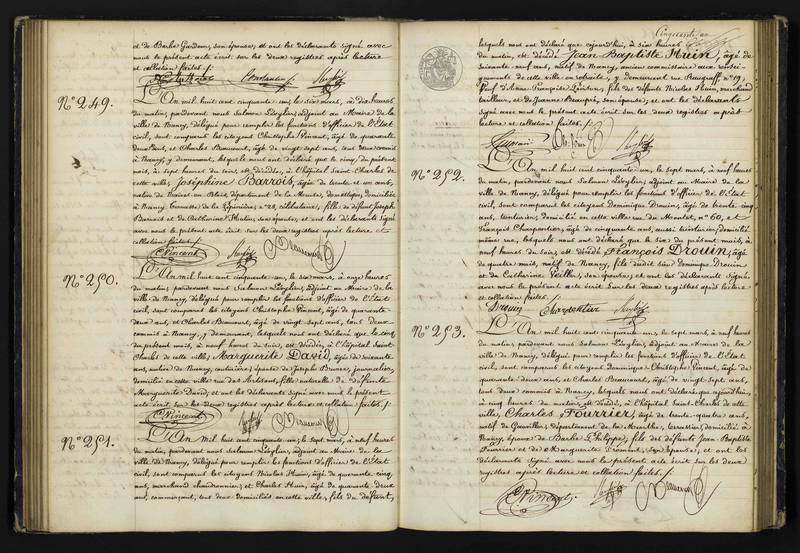 et de Barbe Gardeur, son épouse; et ont les déclarants signé avec
nous le présent acte écrit sur les deux registres après lecture
et collation faites./.
N° 249.
L'An mil huit cent cinquante un, le six mars, à dix heures
du matin, pardevant nous Salmon Lévylier, adjoint au Maire de la
ville de Nancy, délégué pour remplir les fonctions d'officier de l'Etat
civil, sont comparus les citoyens Christophe Pincent, âgé de quarante
deux ans, et Charles Beaucourt, âgé de vingt sept ans, tous deux commis
à Nancy, y demeurant, lesquels nous ont déclaré que le cinq du présent
mois, à sept heures du soir, est décédée, à l'hôpital Saint Charles de
cette ville, Joséphine Barrois, âgée de trente et un ans,
native de département de la Meuse, domestique, domiciliée
à Nancy, Terrasse de la Pépinière, n° 28, célibataire, fille de défunt Joseph
Barrois et de Catherine Martin, son épouse; et ont les déclarants signé
avec nous le présent acte écrit sur les deux registres après lecture et
collation faites./.
C. Pincent
N° 250.
L'An mil huit cent cinquante un, le six mars, à onze heures
du matin, pardevant nous Salmon Lévylier, adjoint au Maire de la
ville de Nancy, délégué pour remplir les fonctions d'officier de l'Etat
civil, sont comparus les citoyens Christophe Pincent, âgé de quarante
deux ans, et Charles Beaucourt, âgé de vingt sept ans, tous deux
commis à Nancy, y demeurant, lesquels nous ont déclaré que le cinq
du présent mois, à neuf heures du soir, est décédée, à l'hôpital Saint
Charles de cette ville, Marguerite David, âgée de soixante
ans, native de Nancy, couturière, épouse de Joseph journalier,
domiciliée en cette ville rue des Artisans, fille naturelle de défunte
Marguerite David; et ont les déclarants signé avec nous le présent
acte écrit sur les deux registres après lecture et collation faites./.
C. Pincent
N° 251.
L'An mil huit cent cinquante un, le sept mars, à neuf heures
du matin, pardevant nous Salmon Lévylier, adjoint au Maire de la
ville de Nancy, délégué pour remplir les fonctions d'officier de l'Etat
civil, sont comparus les citoyens Nicolas Huin, âgé de quarante cinq
ans, marchand chaudronnier, et Charles Huin, âgé de quarante deux
ans, commerçant, tous deux domiciliés en cette ville, fils du défunt,
Cinquante un
lesquels nous ont déclaré que aujourd'hui, à six heures
du matin, est décédé Jean Baptiste Huin, âgé de
soixante neuf ans, natif de Nancy, ancien commissaire aux
de cette ville en retraite, y demeurant rue n° 19,
veuf d'Anne Françoise fils des défunts Nicolas Huin, marchand
tailleur, et de Jeanne Beaupré, son épouse; et ont les déclarants
signé avec nous le présent acte écrit sur les deux registres après
lecture et collation faites./.
N° 252.
L'An mil huit cent cinquante un, le sept mars, à neuf heures
du matin, pardevant nous Salmon Lévylier, adjoint au Maire de la
ville de Nancy, délégué pour remplir les fonctions d'officier de l'Etat
civil, sont comparus les citoyens Dominique Drouin, âgé de trente cinq
ans, teinturier, domicilié en cette ville rue du Montet, n° 60, et
François Charpentier, âgé de cinquante ans, aussi teinturier, domicilié
même rue, lesquels nous ont déclaré que le six du présent mois, à
neuf heures du soir, est décédé François Drouin, âgé
de quatre mois, natif de Nancy, fils dudit sieur Dominique Drouin
et de Catherine son épouse; et ont les déclarants signé
avec nous le présent acte écrit sur les deux registres après lecture
et collation faites./.
Drouin Charpentier
N° 253.
L'An mil huit cent cinquante un, le sept mars, à neuf heures
du matin, pardevant nous Salmon Lévylier, adjoint au Maire de la
ville de Nancy, délégué pour remplir les fonctions d'officier de l'Etat
civil, sont comparus les citoyens Dominique Christophe Pincent, âgé de
quarante deux ans, et Charles Beaucourt, âgé de vingt sept ans,
tous deux commis à Nancy, lesquels nous ont déclaré que aujourd'hui,
à cinq heures du matin, est décédé, à l'hôpital Saint Charles de cette
ville, Charles Fourrier, âgé de trente quatre ans,
natif de département de la Meurthe, terrassier, domicilié à
Nancy, époux de Barbe Philippe, fils des défunts Jean Baptiste
Fourrier et de Marguerite Froment, son épouse; et ont les
déclarants signé avec nous le présent acte écrit sur les deux
registres après lecture et collation faites./.
C. Pincent